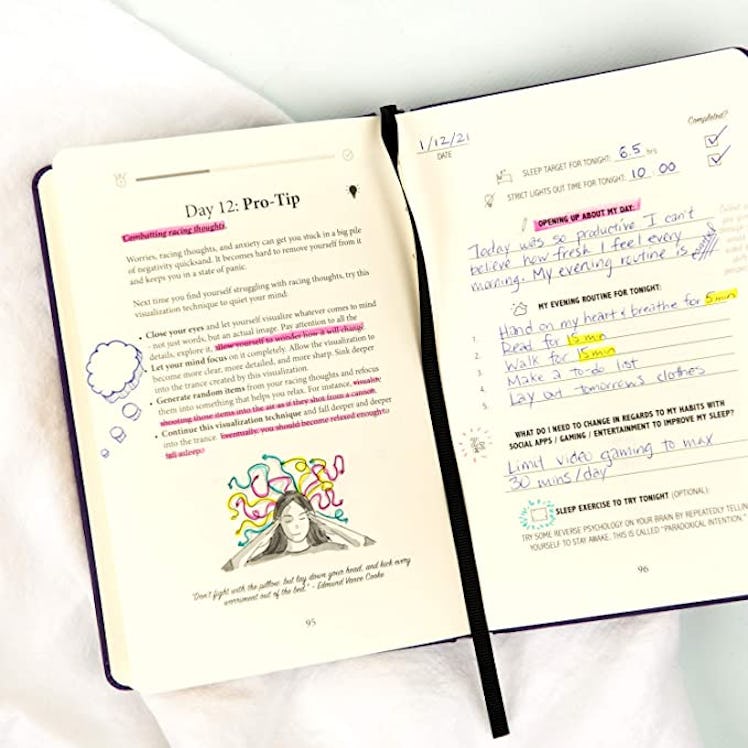 Day 12: Pro-Tip
Combatting racing thoughts
Worries, racing thoughts, and anxiety can get you stuck in a big pile
of negativity quicksand. It becomes hard to remove yourself from it
and keeps you in a state of panic.
Next time you find yourself struggling with racing thoughts, try this
visualization technique to quiet your mind:
• Close your eyes and let yourself visualize whatever comes to mind
- not just words, but an actual image. Pay attention to all the
details, explore it, allow yourself to wonder how it will change.
• Let your mind focus on it completely. Allow the visualization to
become more clear, more detailed, and more sharp. Sink deeper
into the trance created by this visualization.
• Generate random items from your racing thoughts and refocus
them into something that helps you relax. For instance, visualize
shooting those items into the air as if they shot from a cannon.
• Continue this visualization technique and fall deeper and deeper
into the trance. Eventually, you should become relaxed enough to
fall asleep.
"Don't fight with the pillow, but lay down your head, and kick every
worriment out of the bed." - Edmund Vance Cooke
95
1/12/21
DATE
Completed?
SLEEP TARGET FOR TONIGHT: 6.5 hrs
STRICT LIGHTS OUT TIME FOR TONIGHT: 10:00
OPENING UP ABOUT MY DAY:
Today was so productive I can't
believe how fresh I feel every
morning. My evening routine is
MY EVENING ROUTINE FOR TONIGHT:
1. Hand on my heart & breathe for 5 min
2. Read for 15 min
3. Walk for 15 min
4. Make a to-do list
5. Lay out tomorrows clothes
WHAT DO I NEED TO CHANGE IN REGARDS TO MY HABITS WITH
SOCIAL APPS / GAMING / ENTERTAINMENT TO IMPROVE MY SLEEP?
Limit video gaming to max
30 mins/day
SLEEP EXERCISE TO TRY TONIGHT (OPTIONAL):
TRY SOME REVERSE PSYCHOLOGY ON YOUR BRAIN BY REPEATEDLY TELLIN
YOURSELF TO STAY AWAKE. THIS IS CALLED "PARADOXICAL INTENTION."
96